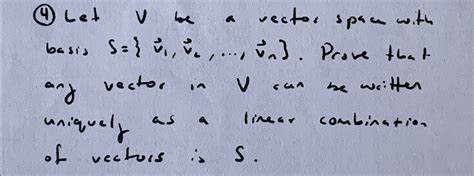 ④ Let V be a vector space with
basis S={ v⃗₁, v⃗₂, ..., v⃗ₙ}. Prove that
any vector in V can be written
uniquely as a linear combination
of vectors is S.